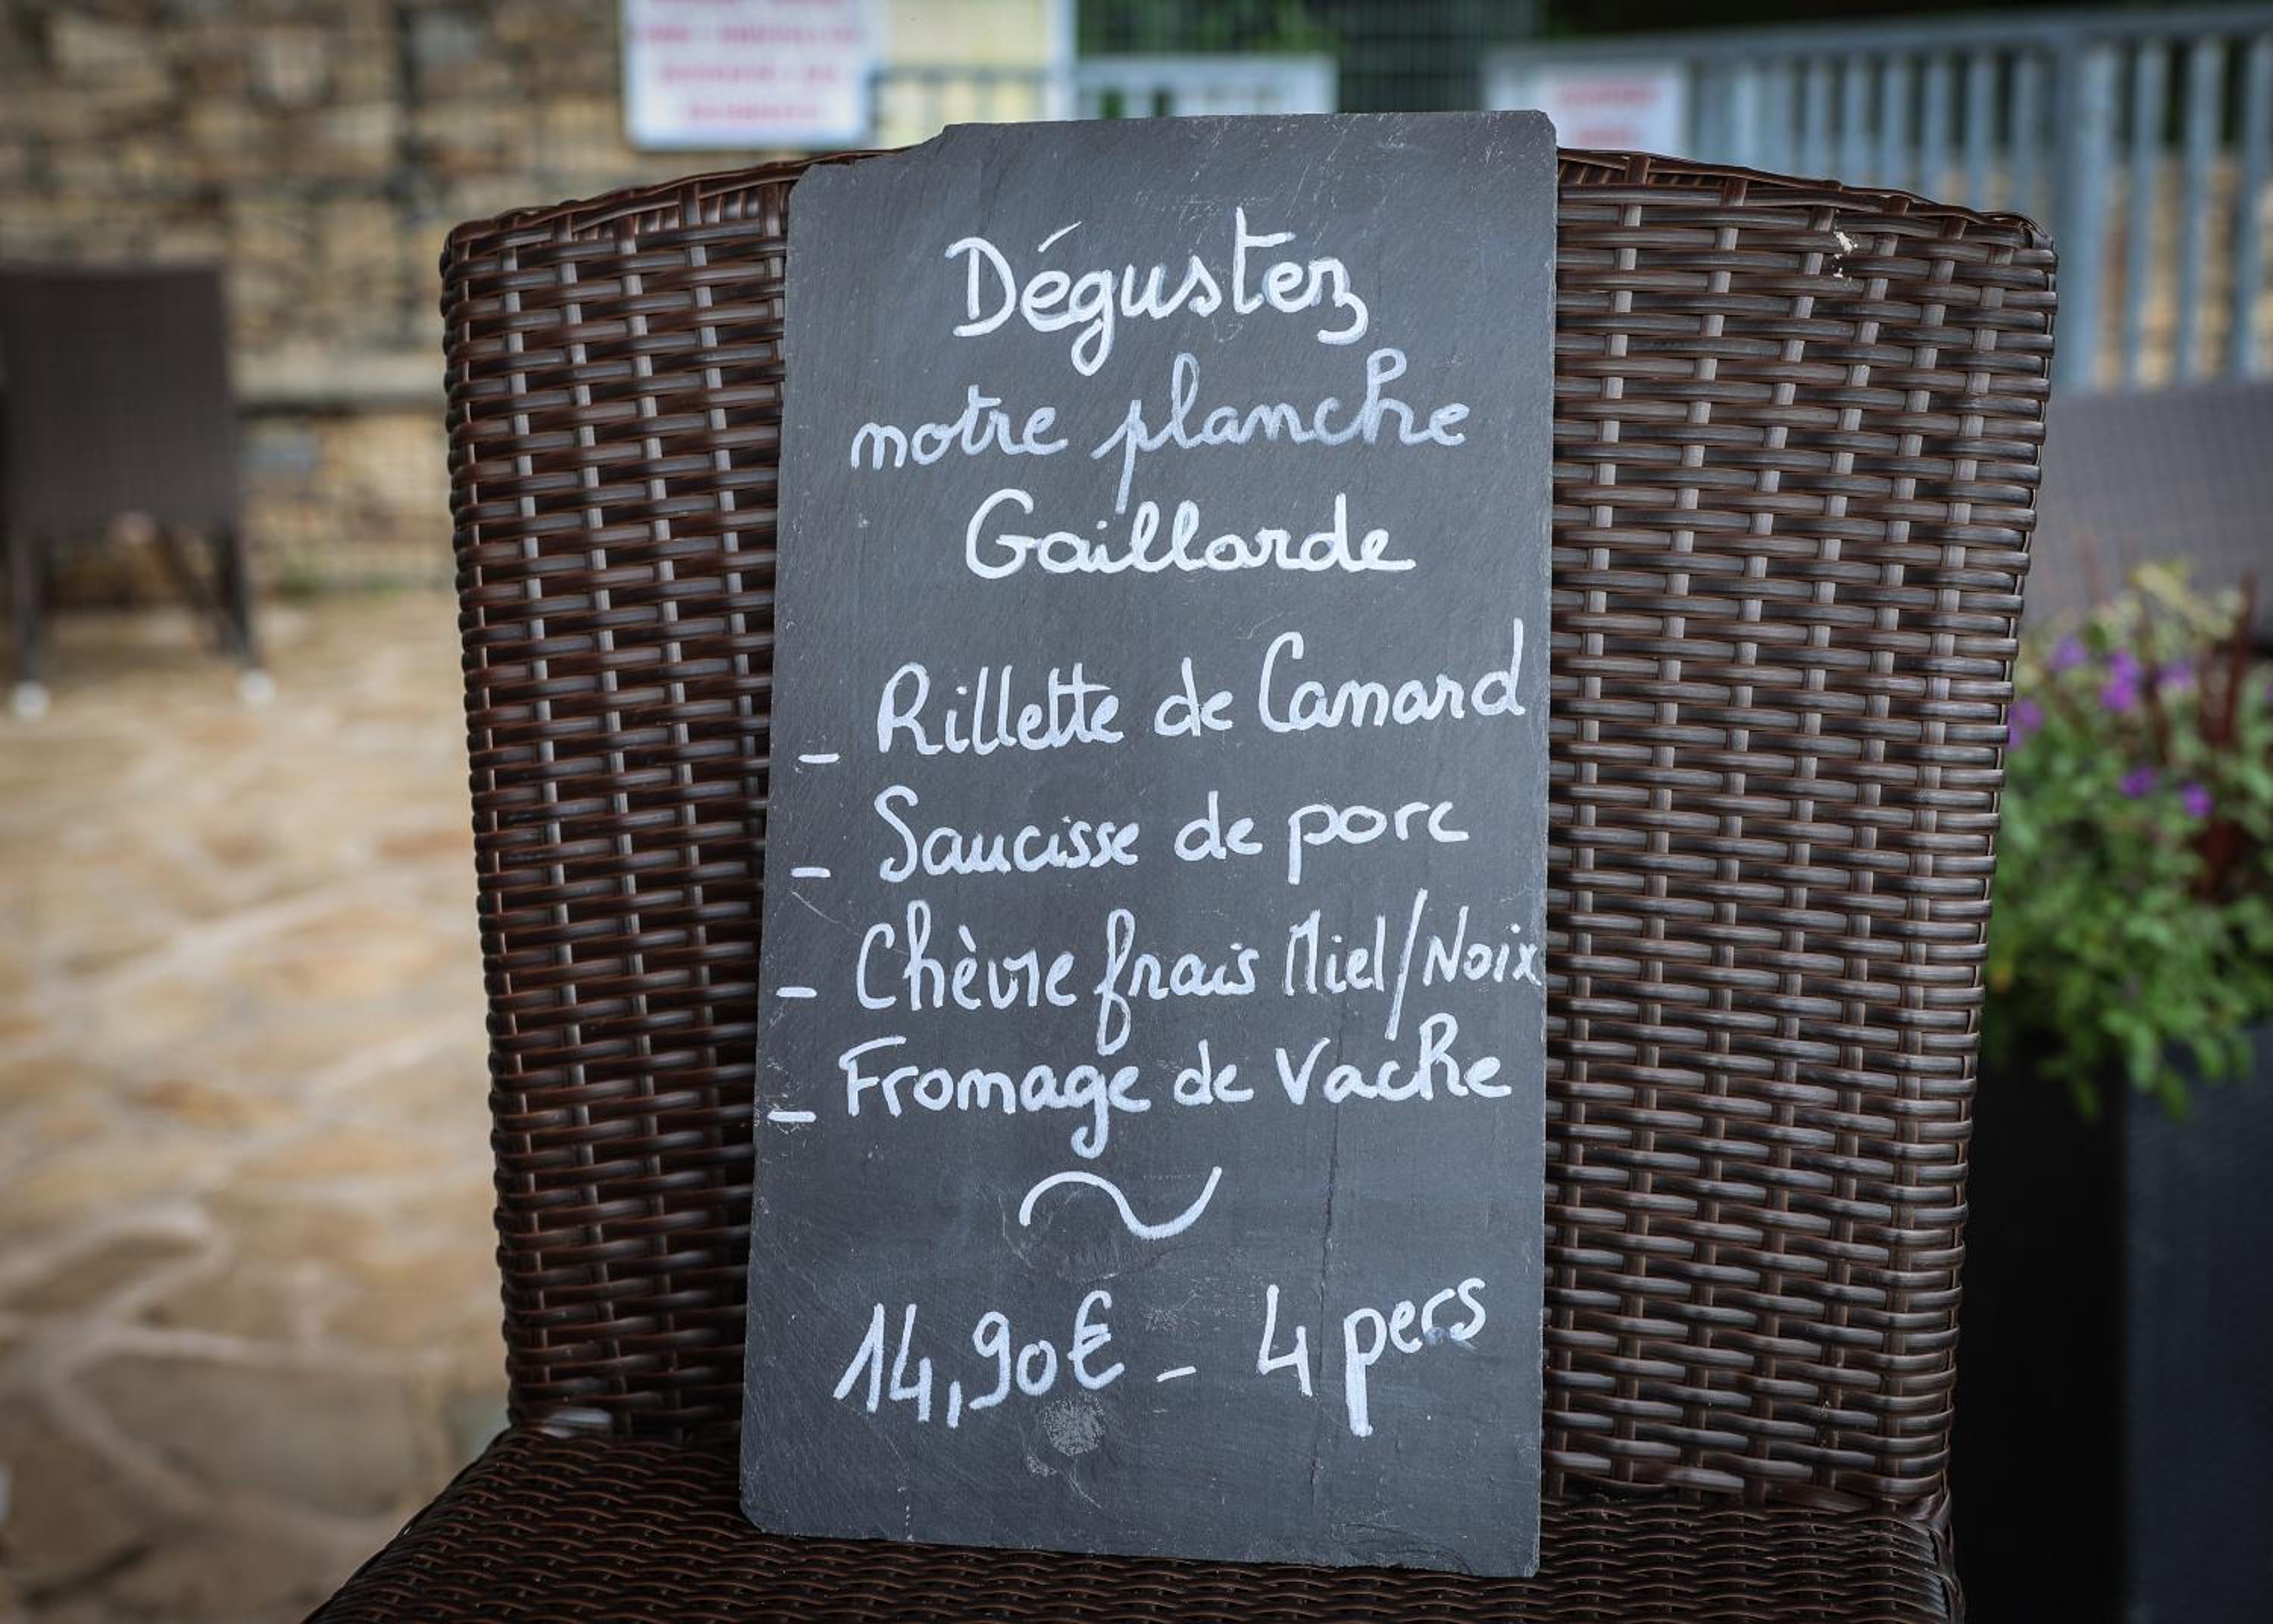 Dégustez
notre planche
Gaillarde
- Rillette de Canard
- Saucisse de porc
- Chèvre frais Miel/Noix
- Fromage de Vache
~
14,90€ - 4 pers